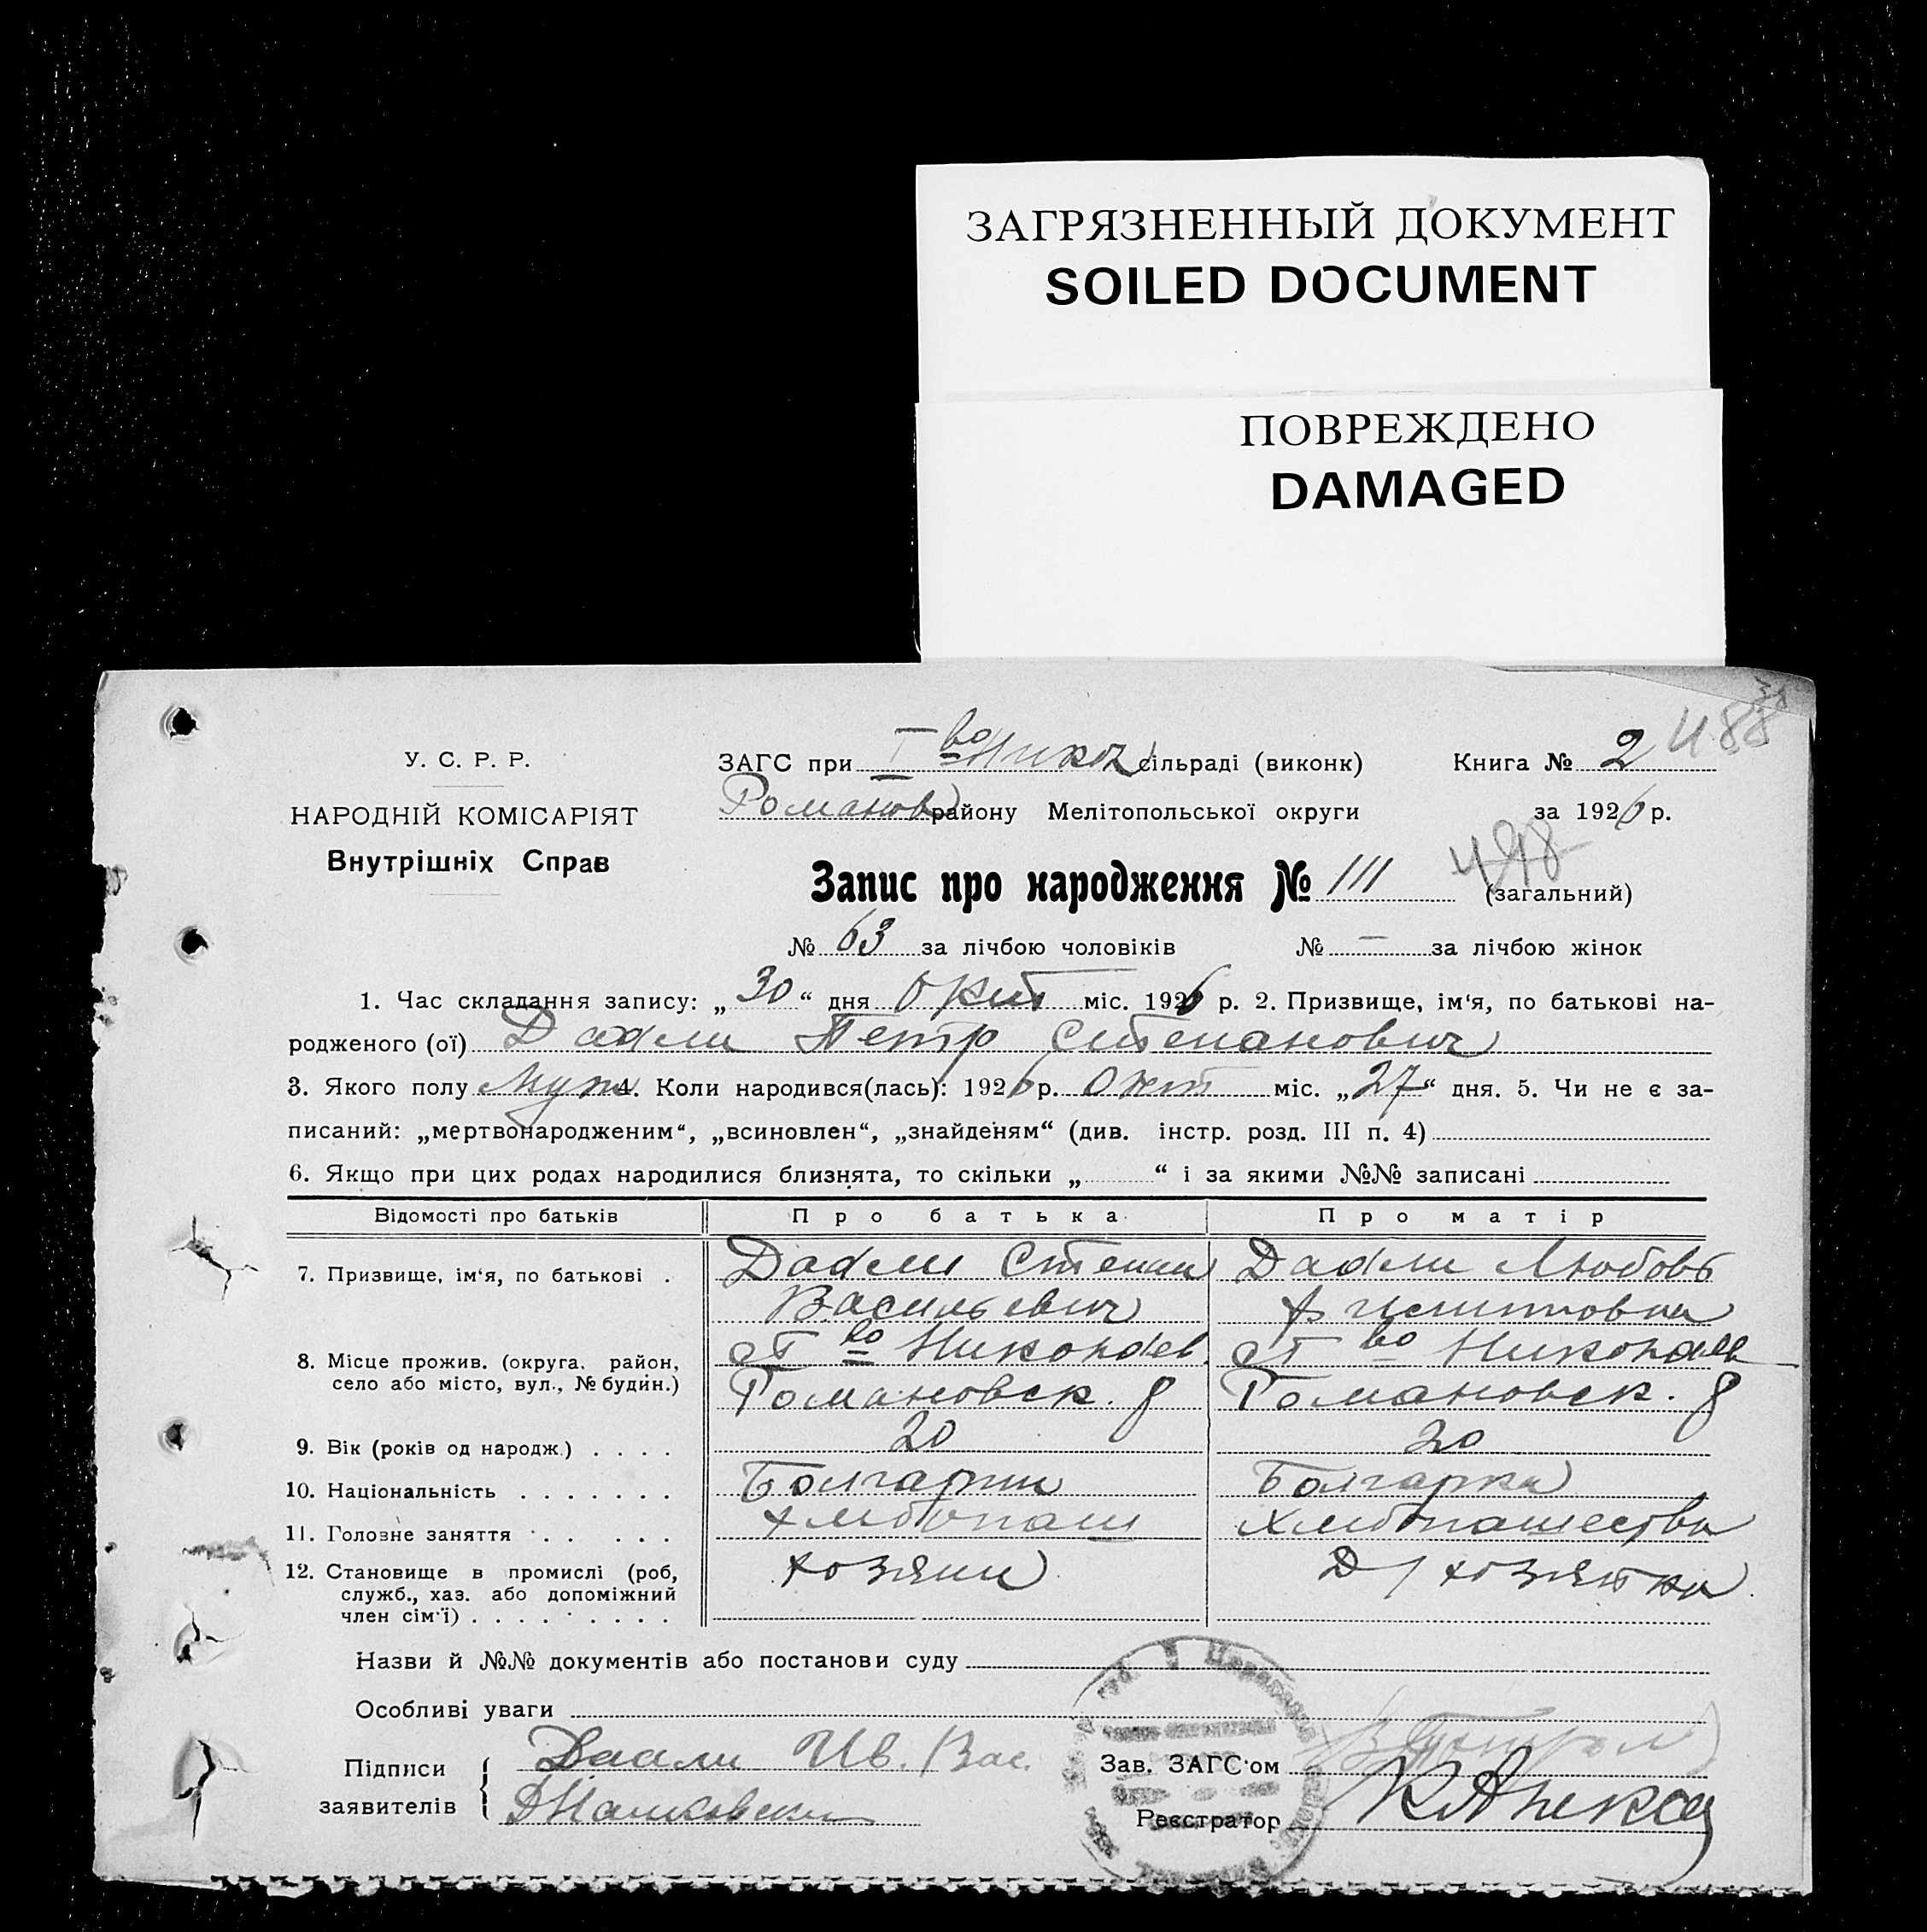 ЗАГРЯЗНЕННЫЙ ДОКУМЕНТ
SOILED DOCUMENT
ПОВРЕЖДЕНО
DAMAGED
488
У. С. Р. Р.
ЗАГС при I во Никол сільраді (виконк)
Книга № 2
НАРОДНІЙ КОМІСАРІЯТ
Романов району Мелітопольської округи
за 1926 р.
Внутрішніх Справ
498
Запис про народження № 111 (загальний)
№ 63 за лічбою чоловіків № — за лічбою жінок
1. Час складання запису: „30“ дня Окт міс. 1926 р. 2. Призвище, ім‘я, по батькові на-
родженого (ої) Даали Петр Степанович
3. Якого полу муж 4. Коли народився(лась): 1926 р. Окт міс. „27“ дня. 5. Чи не є за-
писаний: „мертвонародженим“, „всиновлен“, „знайденям“ (див. інстр. розд. III п. 4)
6. Якщо при цих родах народилися близнята, то скільки „ “ і за якими №№ записані
Відомості про батьків Про батька Про матір
7. Призвище, ім‘я, по батькові . Даали Степан Даали Любовь
Васильевич
8. Місце прожив. (округа, район, I во Николаев. I во Николаев
село або місто, вул., № будин.) Романовск. р Романовск. р
9. Вік (років од народж.) . . . . 20 20
10. Національність . . . . . . . Болгарин Болгарка
11. Головне заняття . . . . . . Хлибопаш Хлибопашества
12. Становище в промислі (роб, хозяин Д/хозяйка
служб., хаз. або допоміжний
член сім‘ї) . . . . . . . . .
Назви й №№ документів або постанови суду
Особливі уваги
Підписи Даали Ив. Вас.
Зав. ЗАГС‘ом
заявителів
Реєстратор